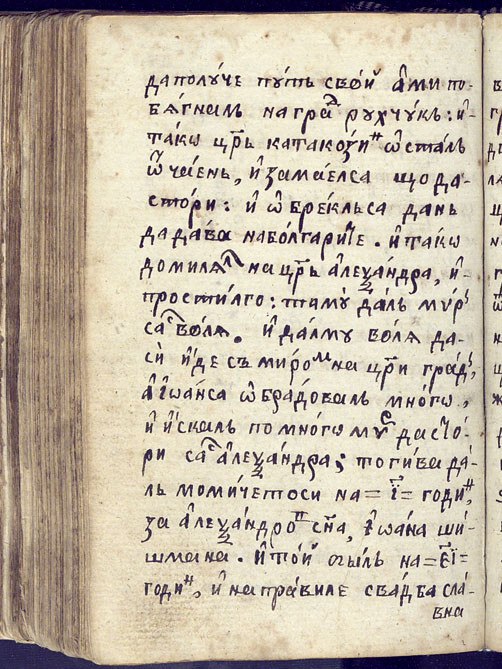 да полу́че пу́ть свой а҆ ми по-
бѧ́гналь на гра̑д рухчу́кь: и҆
та́кѡ цр҃ь катакози́н ѡ҆ста́ль
ѿча́ень, и҆ зама́елса що да-
сто́ри: и҆ ѡ҆бре́кльса дань
да да́ва на бо́лгарите. и҆ та́кѡ
домилѧ́л на цр҃ь а҆леѯа́ндра, и҆-
прости́лго: таму̀ да́ль му́р
са вoлѧ. и҆ да́лму во́лѧ да-
сѝ и҆́де съ ми́ром на цр҃и гра́д,
а҆ і҆ѡа́нса ѡ҆бра́довалъ мно́гѡ,
и҆ и҆ска́ль по мно́гѡ му да сто́-
ри са а҆леѯа́ндра; тогива да́-
ль моми́четоси на = і҃ = годи́н,
за а҆леѯа́ндров сн҃а, і҆ѡа́на ши́-
шмана. и҆ то́й бы́ль на = є҃і =
годи́н, и҆ напра́виле сва́дба сла́-
вна